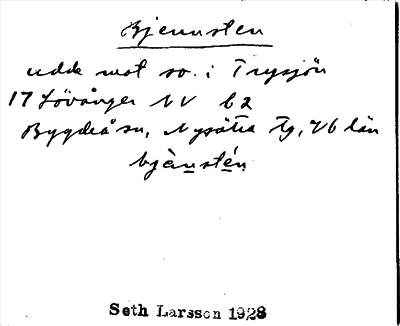 Bjennsten
udde mot so. i Trysjön
17 Lövånger NV b2
Bygdeå sn, Nysätra tg, Vb län
bjènstén
Seth Larsson 1928